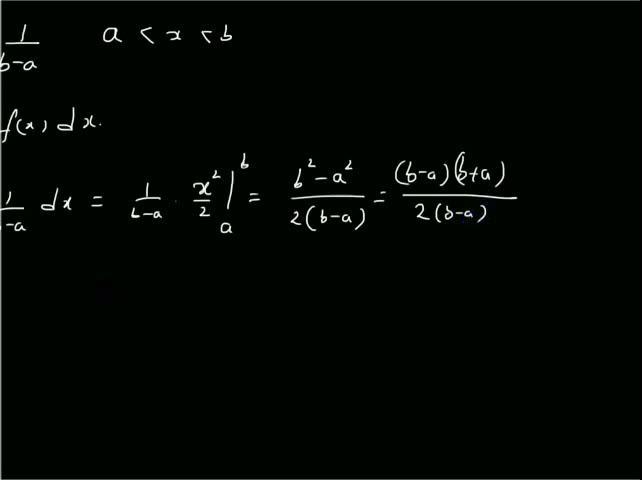 1/(b-a) a < x < b
f(x) dx.
1/(b-a) dx = 1/(b-a) · x²/2 |ₐᵇ = (b² - a²)/(2(b-a)) = ((b-a)(b+a))/(2(b-a))